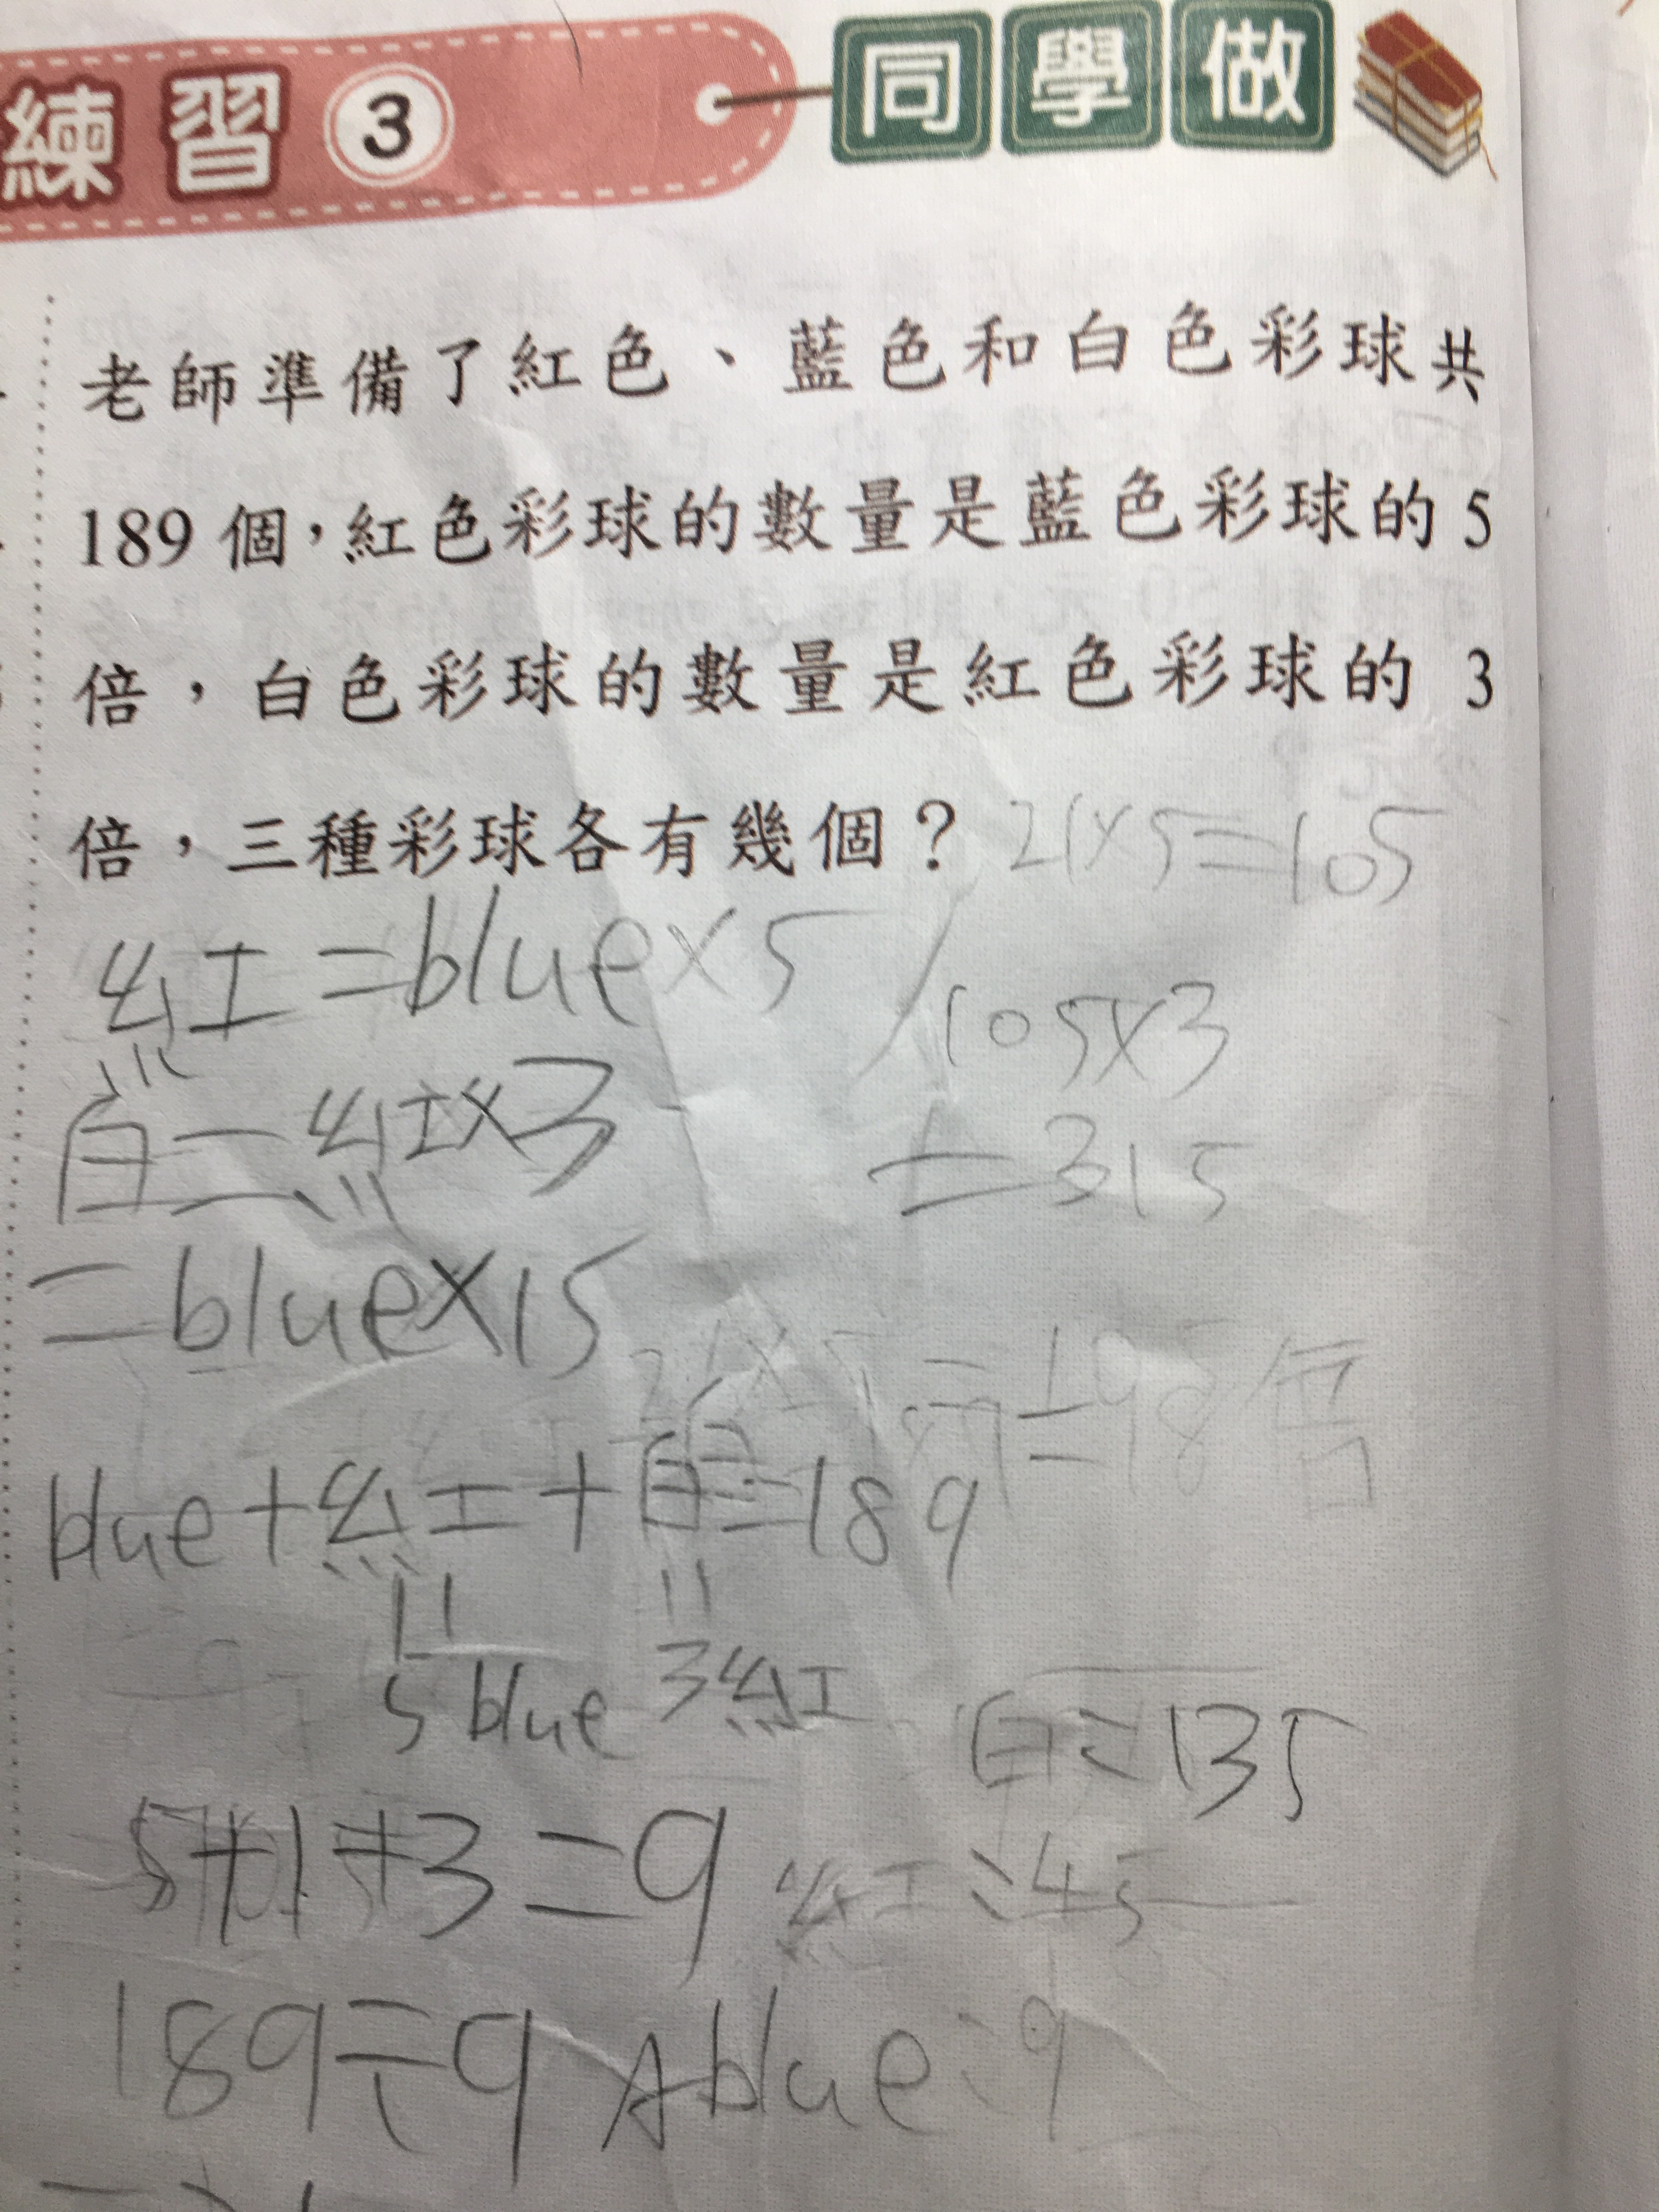 練習3 同學做
老師準備了紅色、藍色和白色彩球共
189個，紅色彩球的數量是藍色彩球的5
倍，白色彩球的數量是紅色彩球的 3
倍，三種彩球各有幾個？ 21×5=105
紅=blue×5
105×3
白=紅×3
=315
=blue×15
blue+紅+白=189
5 blue 3紅
白:135
5+1+3=9
紅:45
189÷9 A blue:9